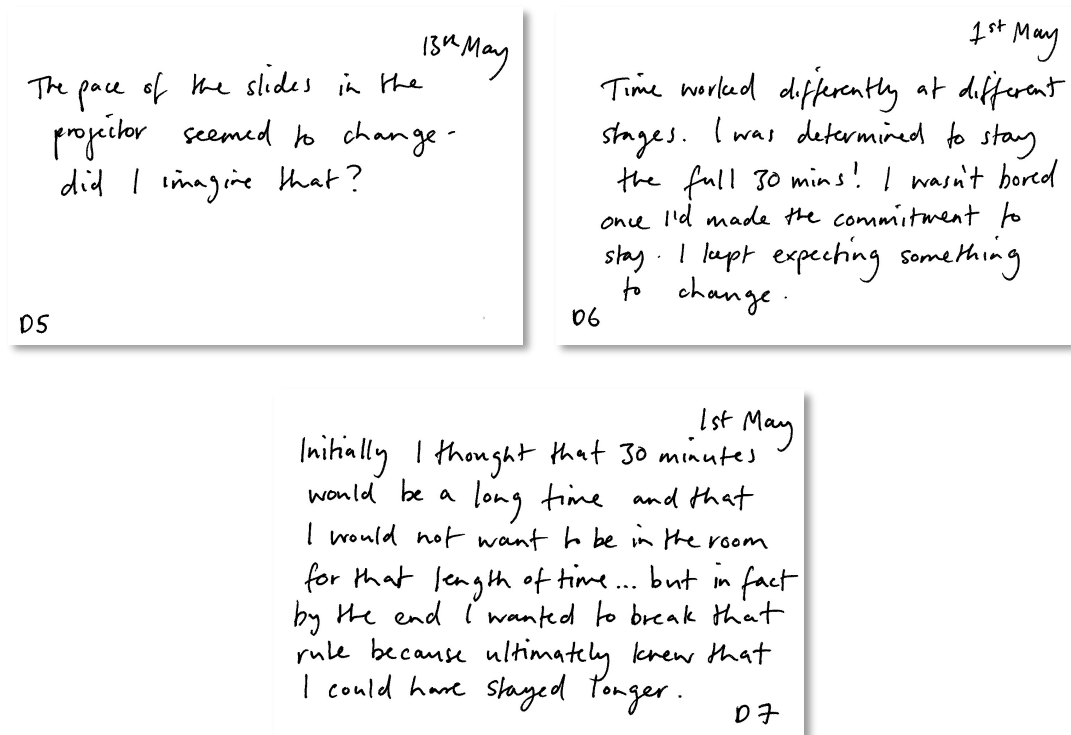 13th May
The pace of the slides in the
projector seemed to change -
did I imagine that?
D5
1st May
Time worked differently at different
stages. I was determined to stay
the full 30 mins! I wasn't bored
once I'd made the commitment to
stay. I kept expecting something
to change.
D6
1st May
Initially I thought that 30 minutes
would be a long time and that
I would not want to be in the room
for that length of time... but in fact
by the end I wanted to break that
rule because ultimately knew that
I could have stayed longer.
D7